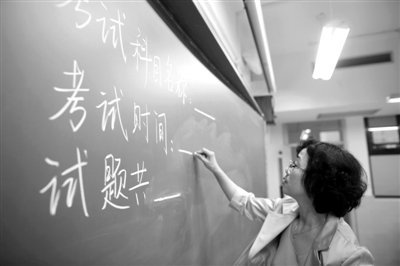 考试科目名称:__
考试时间:__
试题共__